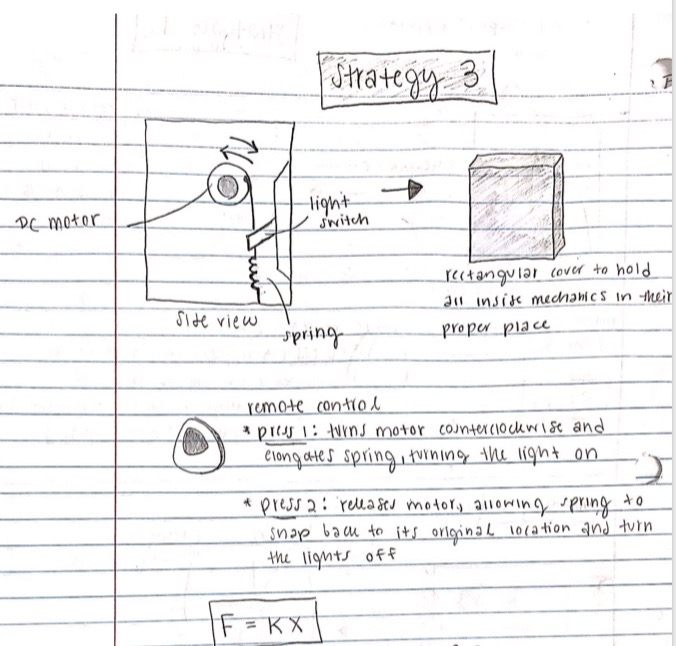 Strategy 3
DC motor
light
switch
side view
spring
rectangular cover to hold
all inside mechanics in their
proper place
remote control
* press 1: turns motor counterclockwise and
elongates spring, turning the light on
* press 2: releases motor, allowing spring to
snap back to its original location and turn
the lights off
F = KX